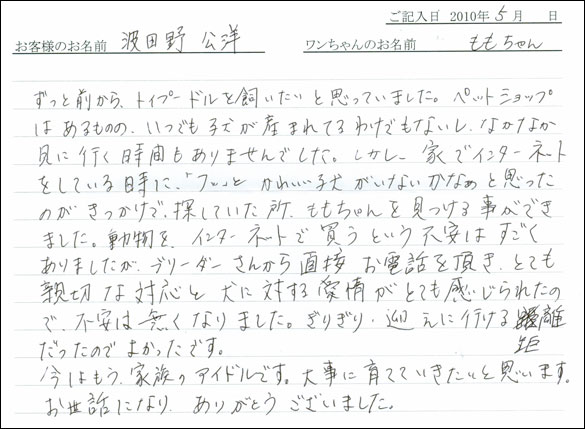 ご記入日 2010年 5月 日
お客様のお名前 波田野 公洋 ワンちゃんのお名前 ももちゃん
ずっと前から、トイプードルを飼いたいと思っていました。ペットショップ
はあるものの、いつでも子犬が産まれてるわけでもないし、なかなか
見に行く時間もありませんでした。しかし、家でインターネット
をしている時に、「フッ」とかわいい子犬がいないかなぁと思った
のがきっかけで、探していた所、ももちゃんを見つける事ができ
ました。動物を、インターネットで買うという不安はすごく
ありましたが、ブリーダーさんから直接お電話を頂き、とても
親切な対応と犬に対する愛情がとても感じられたの
で、不安は無くなりました。ぎりぎり、迎えに行ける距離
だったのでよかったです。
今はもう、家族のアイドルです。大事に育てていきたいと思います。
お世話になり、ありがとうございました。